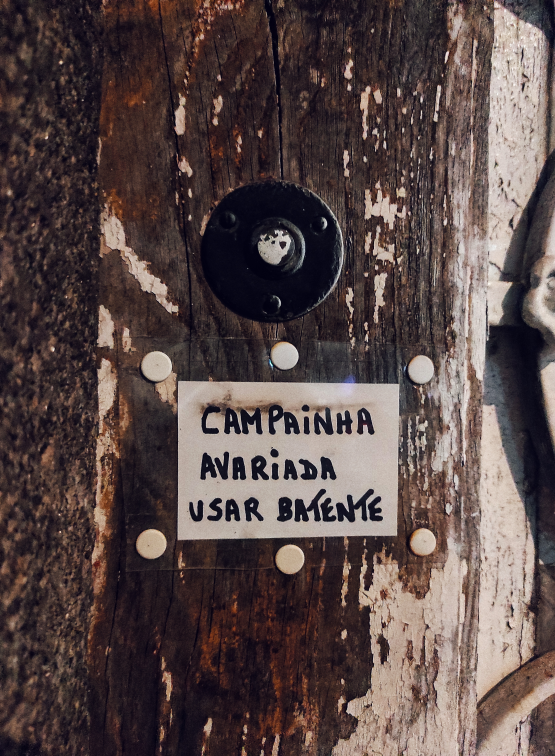 CAMPAiNHA
AVARiADA
USAR BATENTE